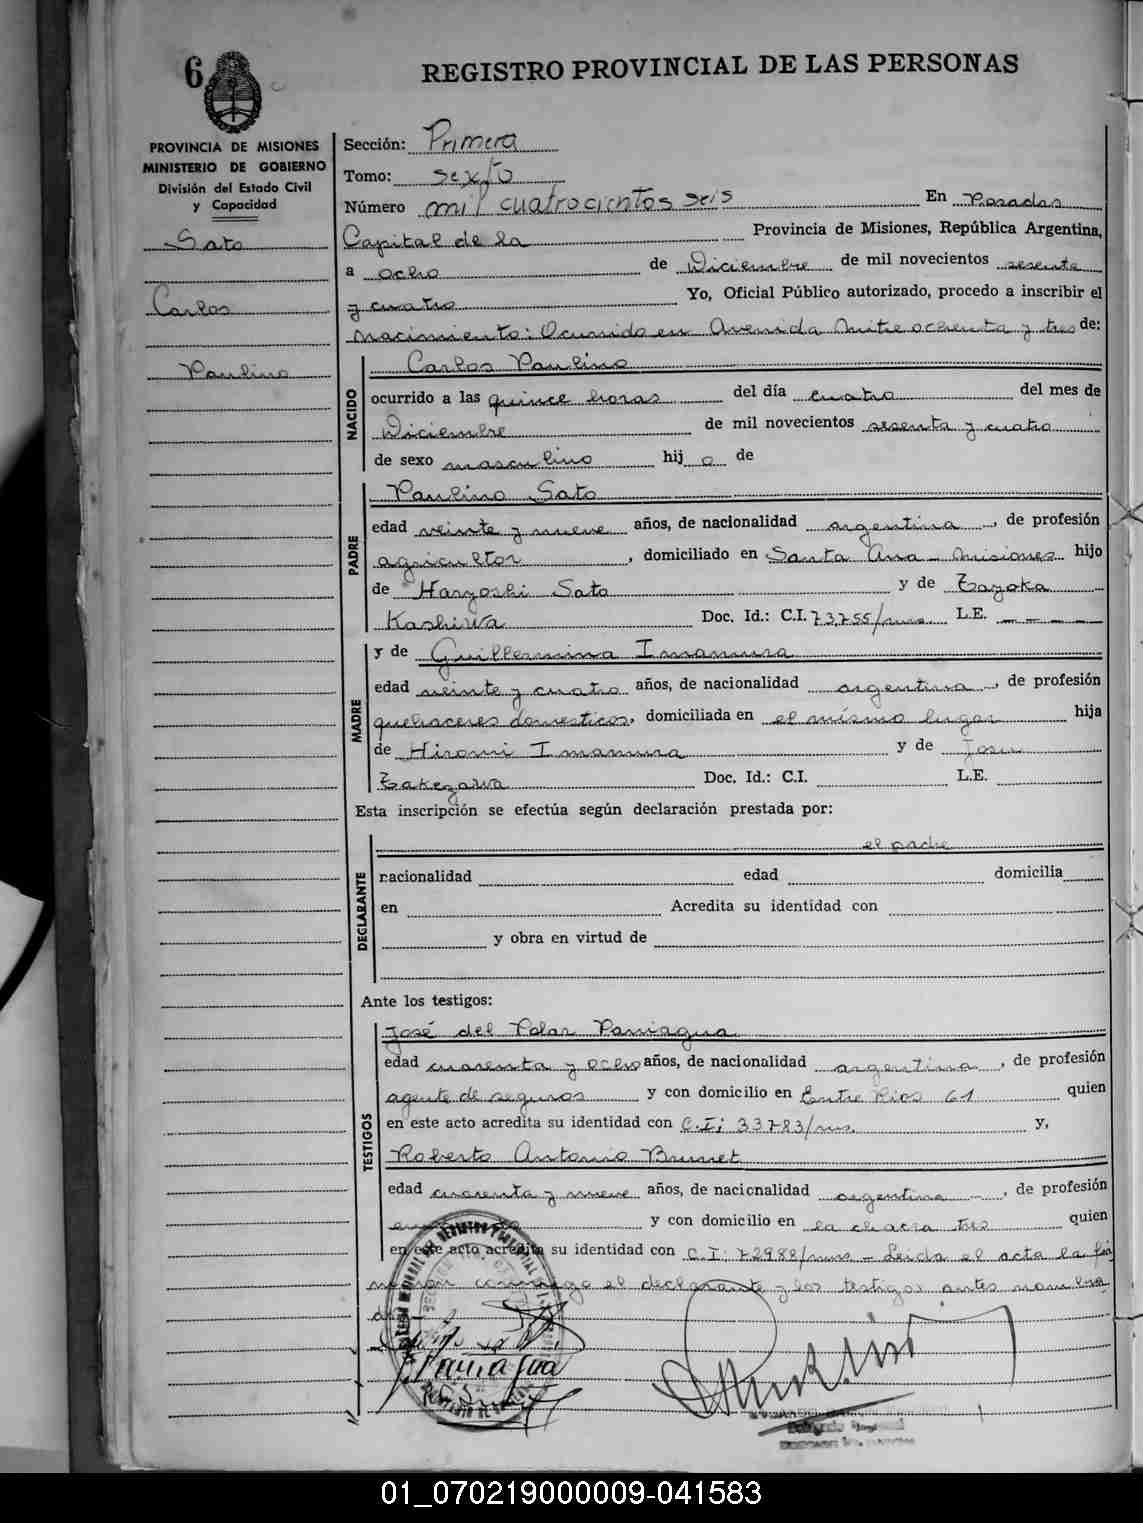 6
REGISTRO PROVINCIAL DE LAS PERSONAS
PROVINCIA DE MISIONES
MINISTERIO DE GOBIERNO
División del Estado Civil
y Capacidad
Sato
Carlos
Paulino
Sección: Primera
Tomo: sexto
Número mil cuatrocientos seis En Posadas
Capital de la Provincia de Misiones, República Argentina,
a ocho de Diciembre de mil novecientos sesenta
y cuatro Yo, Oficial Público autorizado, procedo a inscribir el
nacimiento: Ocurrido en Avenida Mitre ochenta y tres de:
NACIDO
Carlos Paulino
ocurrido a las quince horas del día cuatro del mes de
Diciembre de mil novecientos sesenta y cuatro
de sexo masculino hijo de
PADRE
Paulino Sato
edad veinte y nueve años, de nacionalidad argentina, de profesión
agricultor, domiciliado en Santa Ana - Misiones hijo
de Haryoshi Sato y de Tayoka
Kashiwa Doc. Id.: C.I. 73.755/mns. L.E. - - - -
MADRE
y de Guillermina Imamura
edad veinte y cuatro años, de nacionalidad argentina, de profesión
quehaceres domesticos, domiciliada en el mismo lugar hija
de Hiromi Imamura y de
Takezawa Doc. Id.: C.I. L.E.
Esta inscripción se efectúa según declaración prestada por:
DECLARANTE
el padre
nacionalidad edad domicilia
en Acredita su identidad con
y obra en virtud de
Ante los testigos:
TESTIGOS
José del Polar Paniagua
edad cuarenta y ocho años, de nacionalidad argentina, de profesión
agente de seguros y con domicilio en Entre Rios 61 quien
en este acto acredita su identidad con C.I: 33783/mns. y,
Roberto Antonio Brunet
edad cuarenta y nueve años, de nacionalidad argentina, de profesión
y con domicilio en la chacra tres quien
en este acto acredita su identidad con C.I: 72982/mns - Leida el acta la fir
maron conmigo el declarante y los testigos antes nombra
dos
Paniagua
01_070219000009-041583